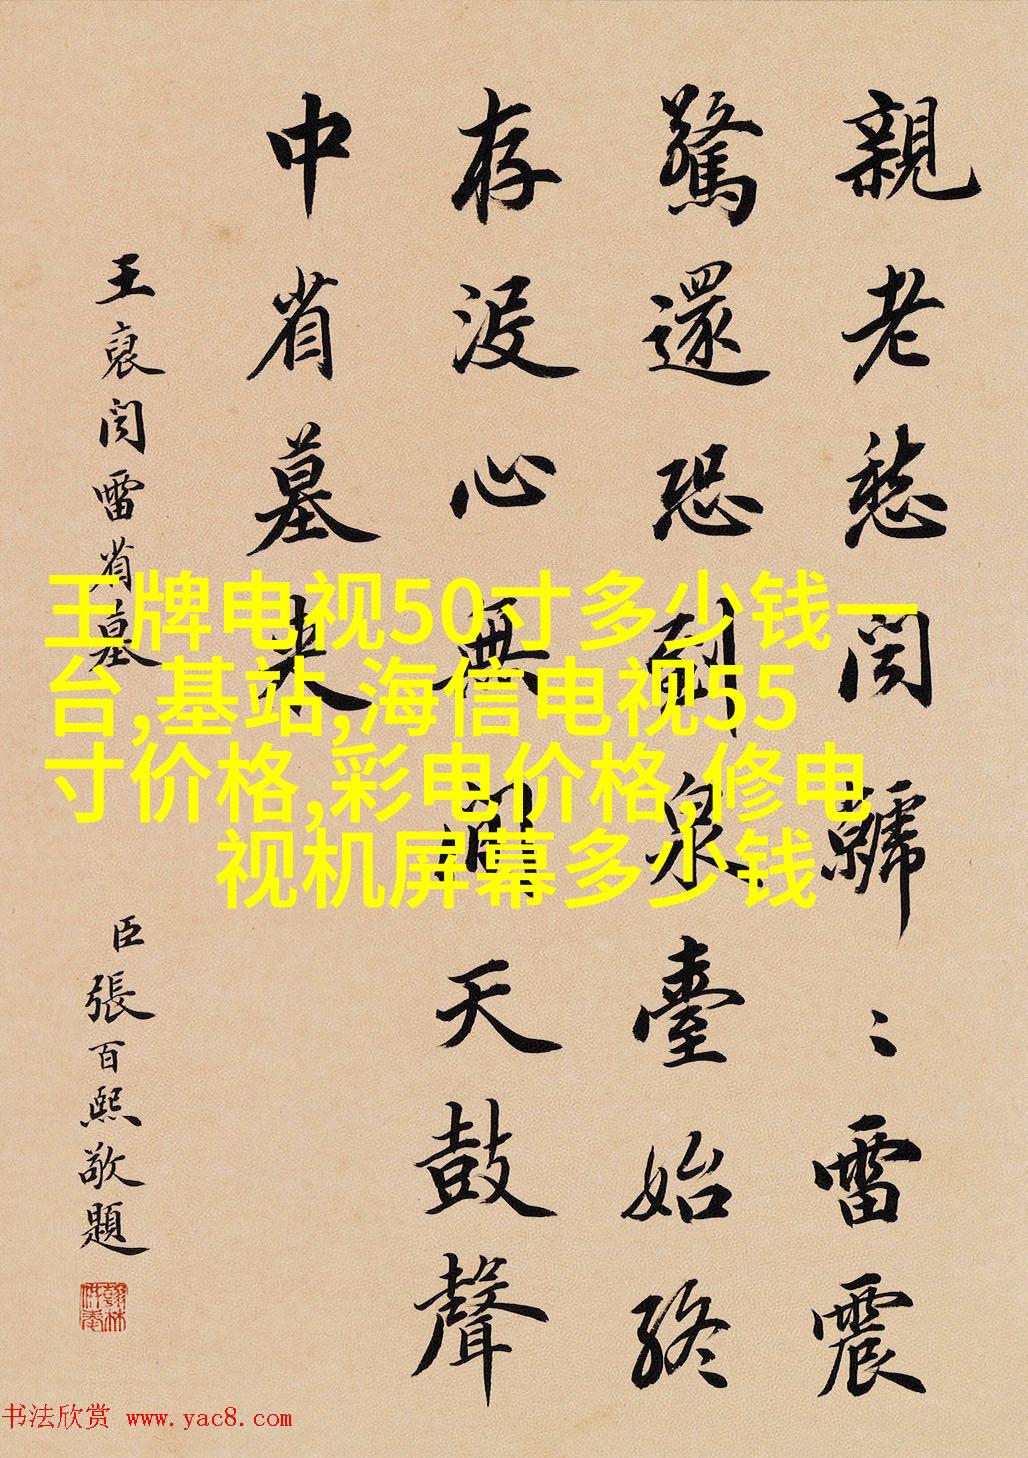 親老愁聞虩〻雷震
驚還恐到泉臺始終
存没心無間天鼓聲
中省墓来
王裒聞雷省墓
臣張百熙敬題
翰林供奉
王牌电视50寸多少钱一
台,基站,海信电视55
寸价格,彩电价格,修电
视机屏幕多少钱
书法欣赏 www.yac8.com